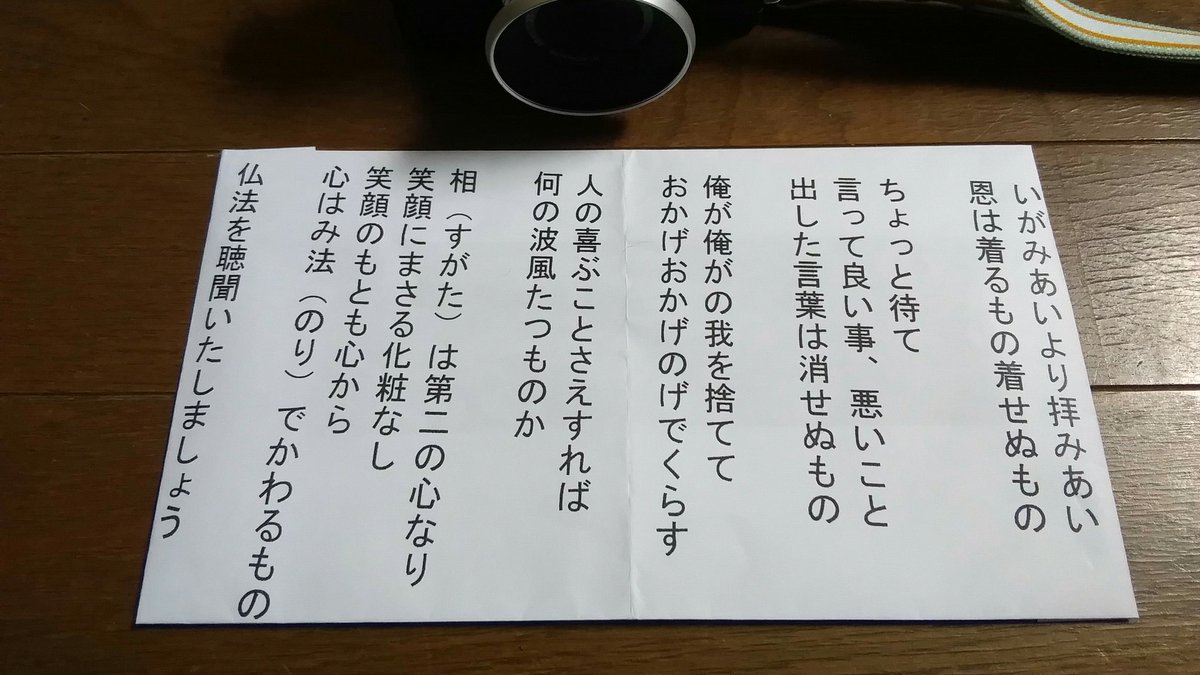 いがみあいより拝みあい
恩は着るもの着せぬもの
ちょっと待て
言って良い事、悪いこと
出した言葉は消せぬもの
俺が俺がの我を捨てて
おかげおかげのげでくらす
人の喜ぶことさえすれば
何の波風たつものか
相（すがた）は第二の心なり
笑顔にまさる化粧なし
笑顔のもとも心から
心はみ法（のり）でかわるもの
仏法を聴聞いたしましょう